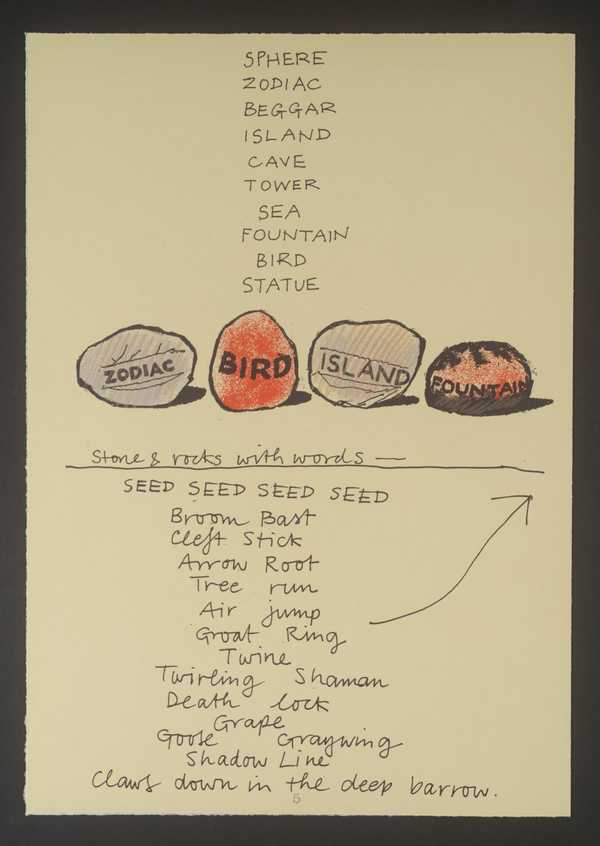 SPHERE
ZODIAC
BEGGAR
ISLAND
CAVE
TOWER
SEA
FOUNTAIN
BIRD
STATUE
ZODIAC
BIRD
ISLAND
FOUNTAIN
Stone & rocks with words —
SEED SEED SEED SEED
Broom Bast
Cleft Stick
Arrow Root
Tree run
Air jump
Groat Ring
Twine
Twirling Shaman
Death lock
Grape
Goose Graywing
Shadow Line
Claws down in the deep barrow.
5